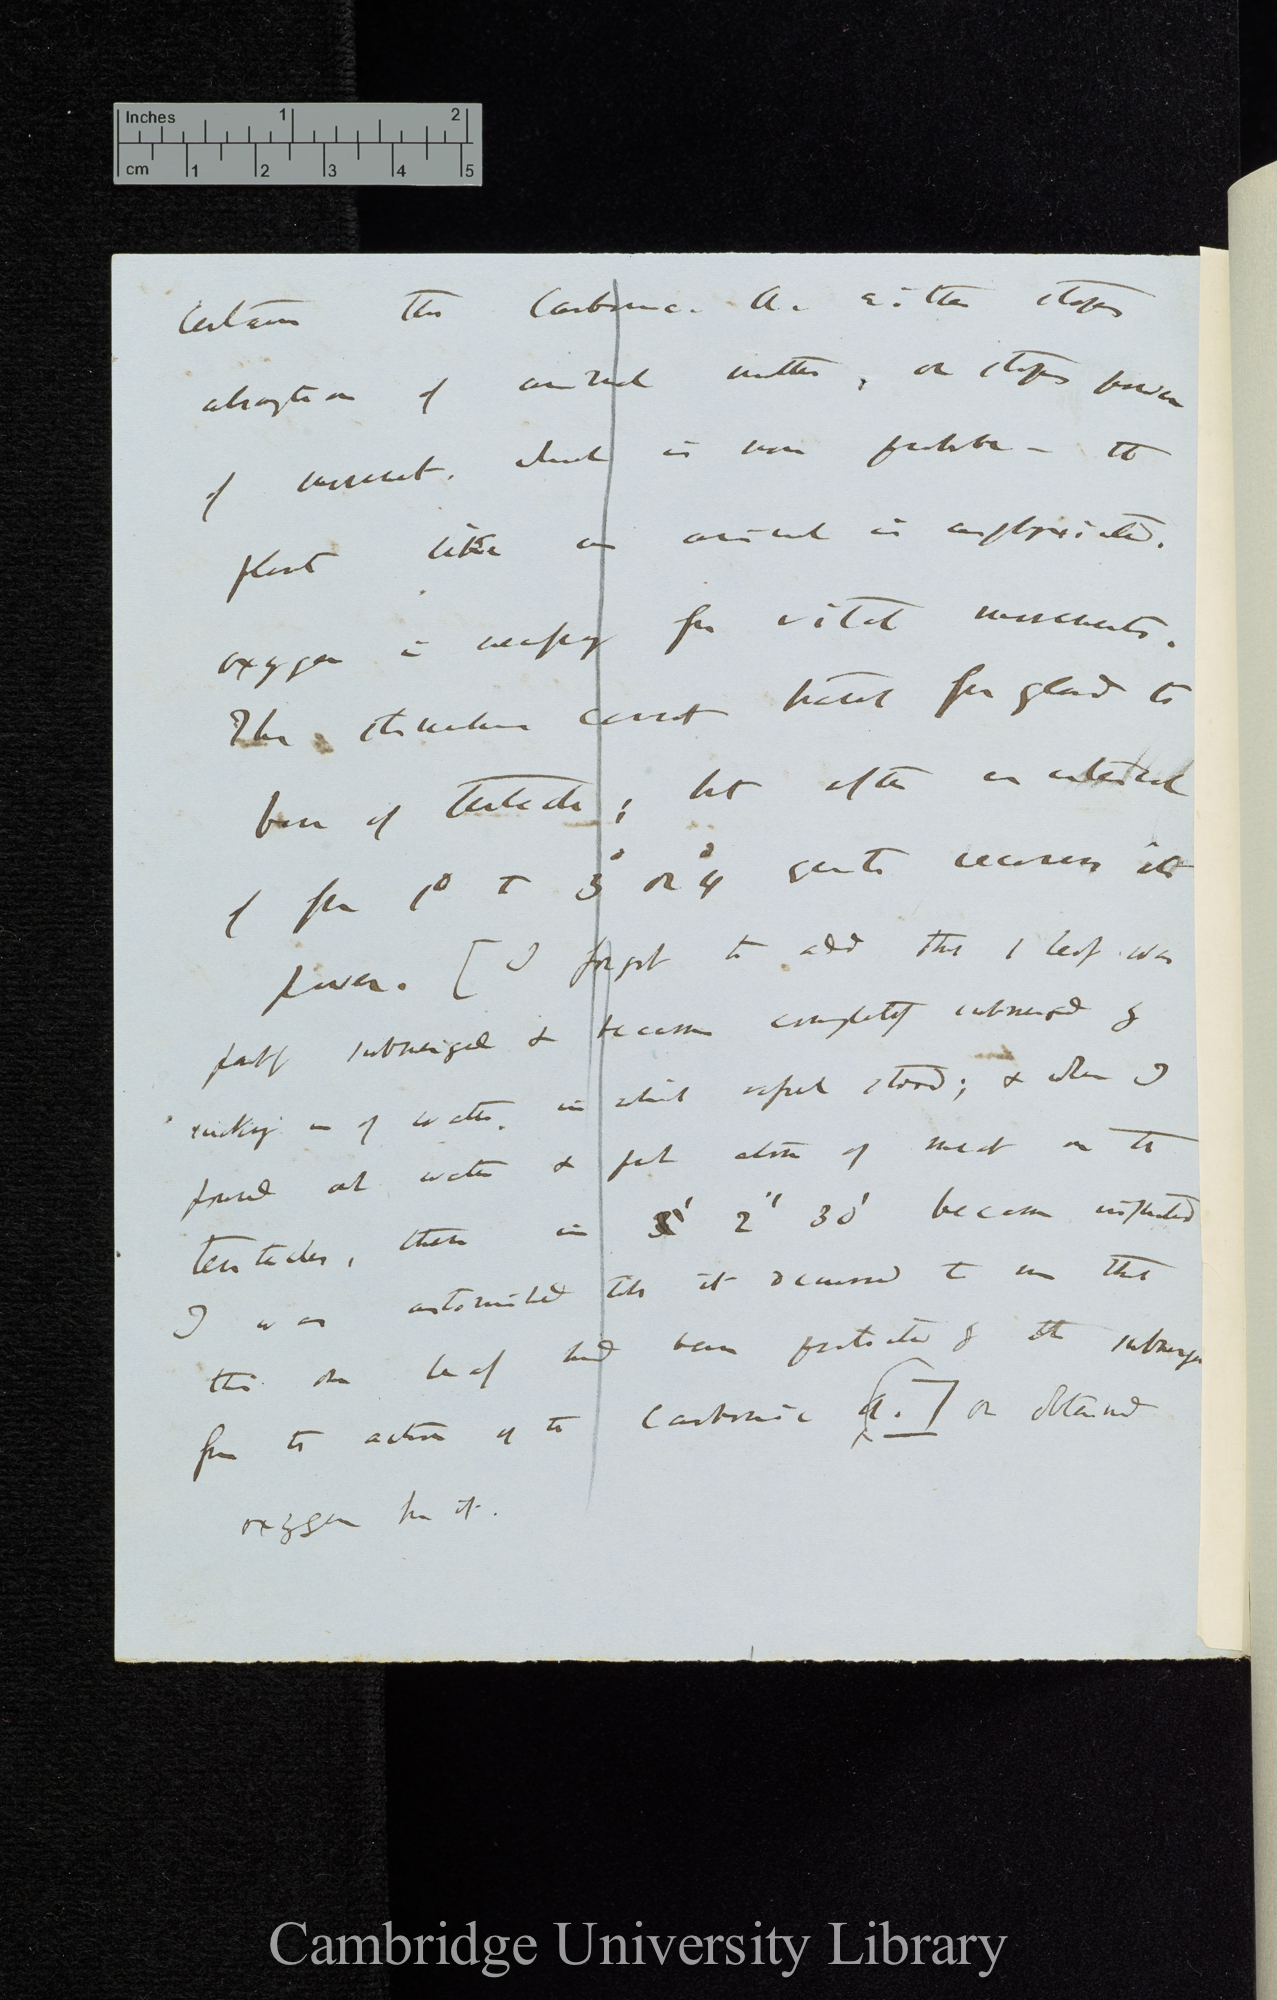 Inches 1 2
cm 1 2 3 4 5
Certain this Carbonic. A. either stops
absorption of animal matter, or stops power
of movement, which is more probable — the
plant like an animal is asphyxiated.
oxygen is necessary for vital movements.
The stimulus cannot travel from gland to
base of tentacle; but after an interval
of from 1° to 3° or 4° gently recovers its
power. [I forgot to add that 1 leaf was
partly submerged & became completely submerged by
sucking in of water, in which vessel stood; & when I
poured out water & put atom of meat on the
tentacles, these in 2" 30' became inflected
I was astonished till it occurred to me that
this one leaf had been protected by the submerge
from the action of the Carbonic A.] or obtained
oxygen from it.
Cambridge University Library